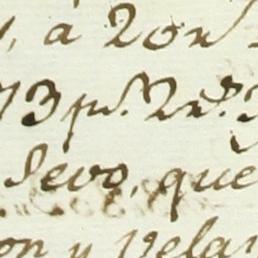 , à 2on
73 pr. 2rs.
Sevo, que
on y Vela